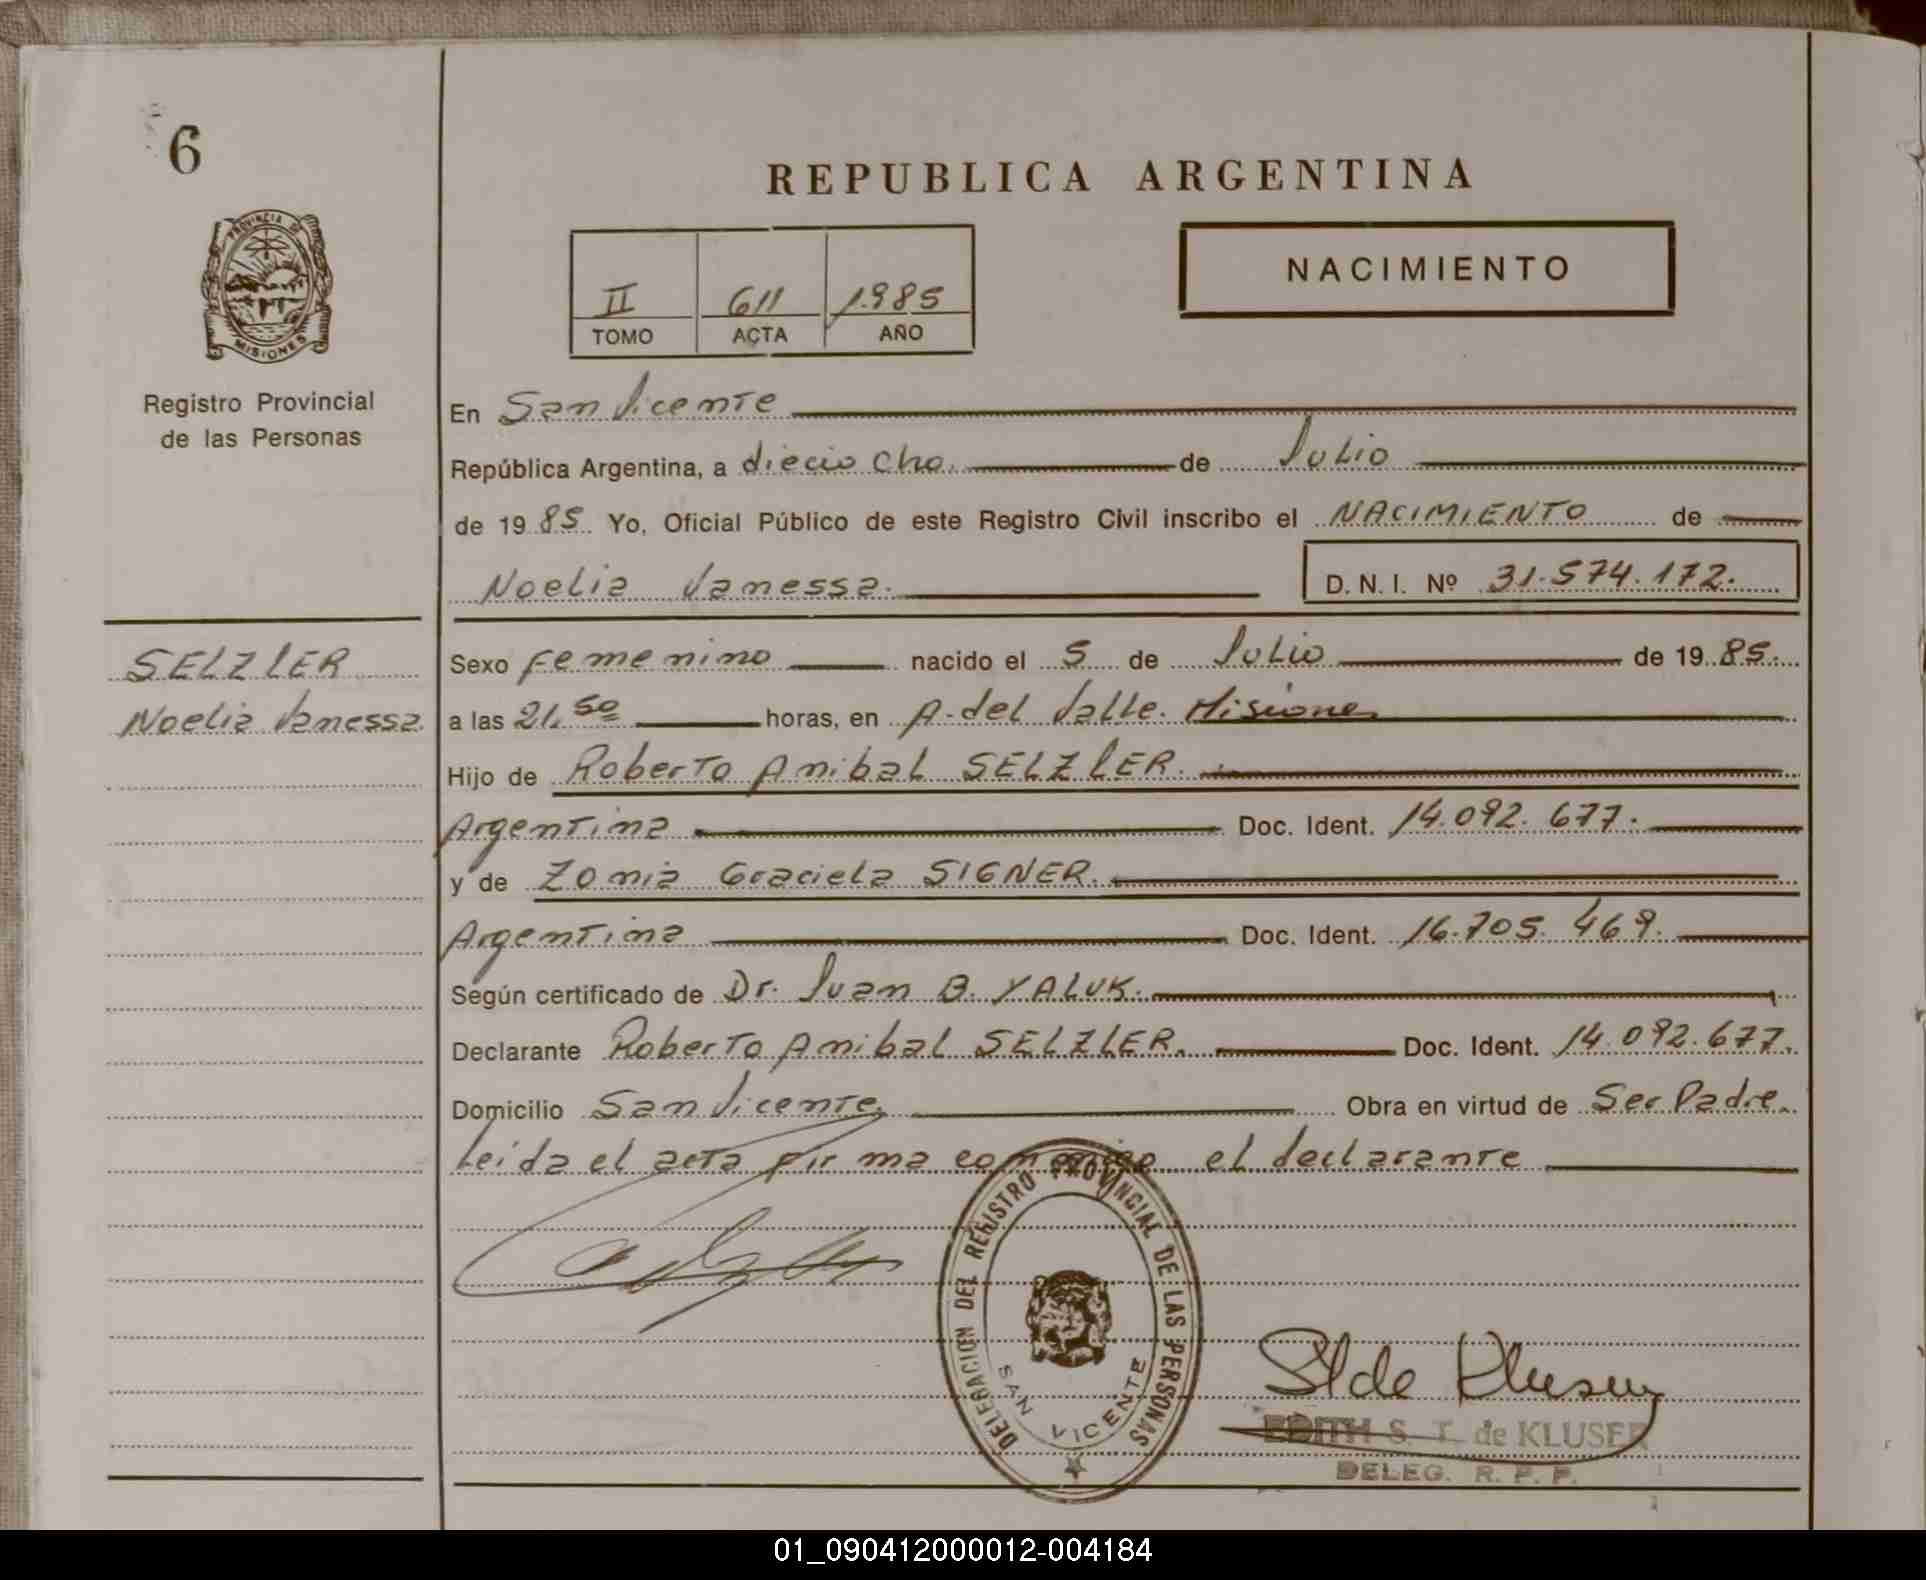 6
PROVINCIA DE
MISIONES
Registro Provincial
de las Personas
SELZLER
Noelia Vanessa.
REPUBLICA ARGENTINA
II 611 1.985
TOMO ACTA AÑO
NACIMIENTO
En San Vicente
República Argentina, a dieciocho. de Julio
de 1985 Yo, Oficial Público de este Registro Civil inscribo el NACIMIENTO de
Noelia Vanessa. D. N. I. Nº 31.574.172.
Sexo Femenino nacido el 5 de Julio de 1985.
a las 21,50 horas, en A. del Valle. Misiones
Hijo de Roberto Anibal SELZLER.
Argentina Doc. Ident. 14.092.677.
y de Zonia Graciela SIGNER.
Argentina Doc. Ident. 16.705.469.
Según certificado de Dr. Juan B. YALUK.
Declarante Roberto Anibal SELZLER. Doc. Ident. 14.092.677.
Domicilio San Vicente, Obra en virtud de Ser Padre.
Leida el acta firma conmigo el declarante
DELEGACION DEL REGISTRO PROVINCIAL DE LAS PERSONAS
SAN VICENTE
EDITH S. T. de KLUSER
DELEG. R. P. P.
01_090412000012-004184